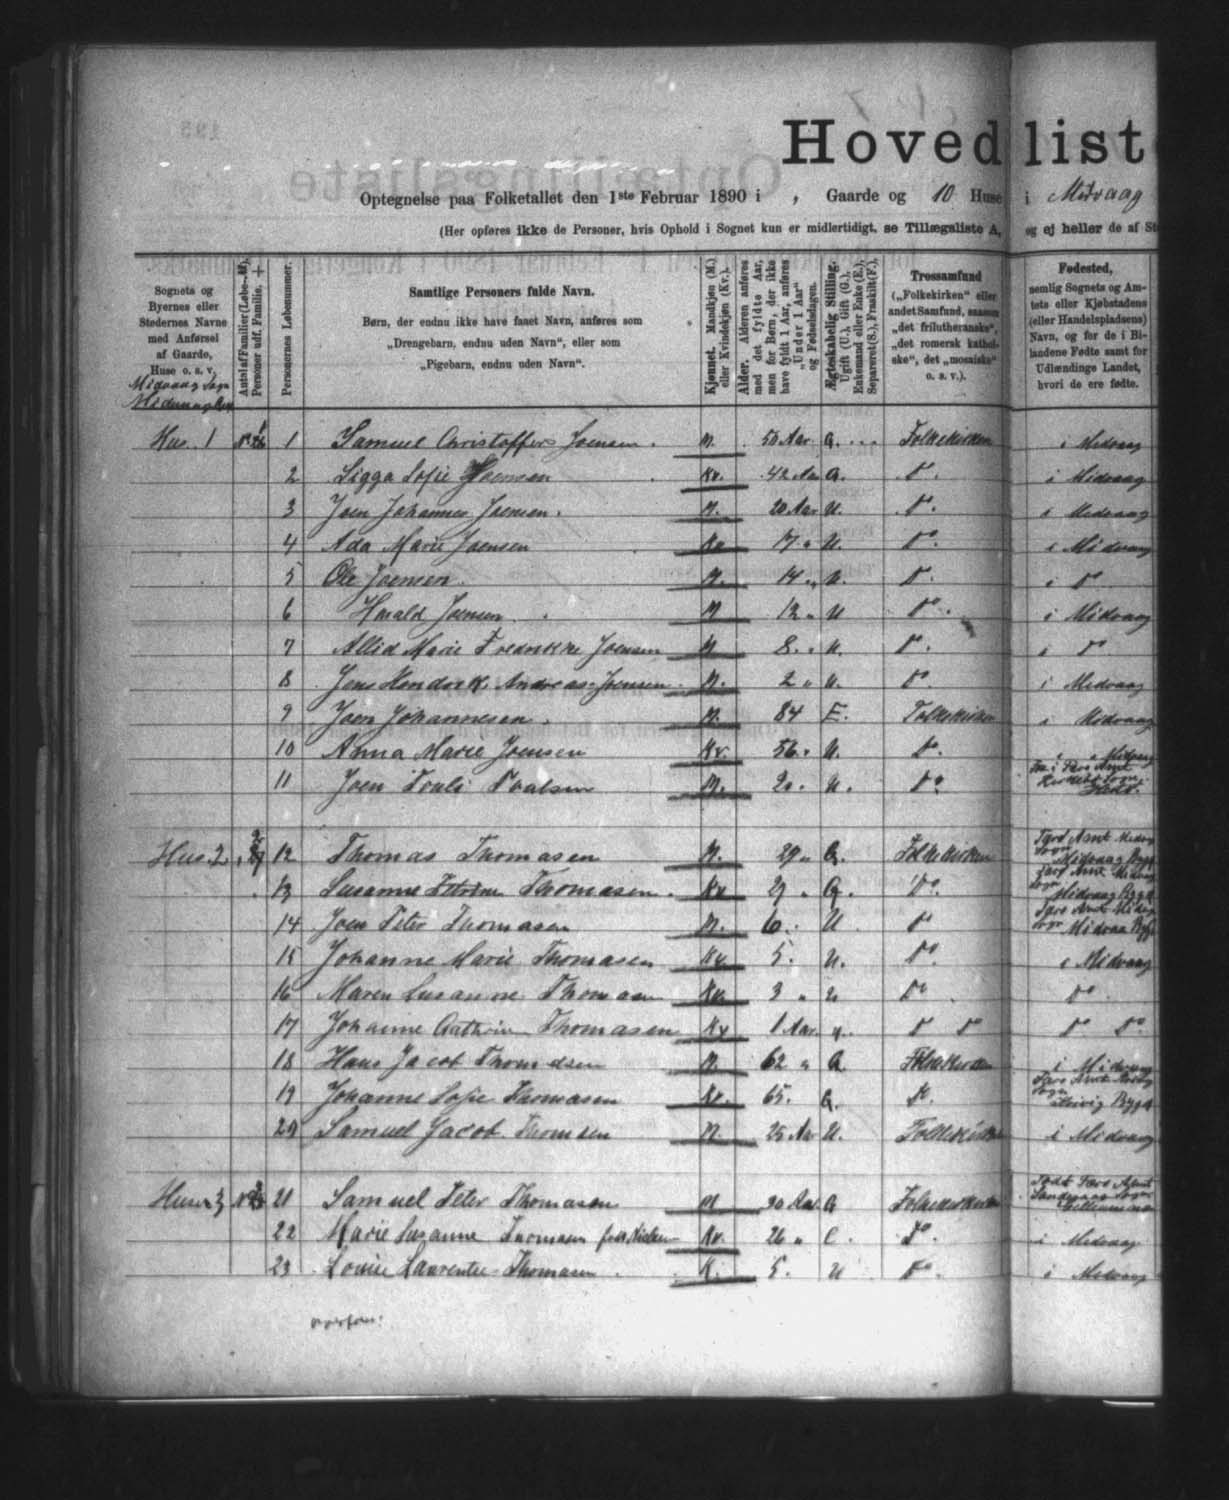 Hovedlist
Optegnelse paa Folketallet den 1ste Februar 1890 i , Gaarde og 10 Huse i Midvaag
(Her opføres ikke de Personer, hvis Ophold i Sognet kun er midlertidigt, se Tillægsliste A, og ej heller de af St
Sognets og Byernes eller Stedernes Navne med Anførsel af Gaarde, Huse o. s. v.
Midvaag Sogn
Antal af Familier (Løbe-№), Personer udf. Familie, +
Personernes Løbenummer.
Samtlige Personers fulde Navn.
Børn, der endnu ikke have faaet Navn, anføres som
„Drengebarn, endnu uden Navn“, eller som
„Pigebarn, endnu uden Navn“.
Kjønnet. Mandkjøn (M.) eller Kvindekjøn (Kv.).
Alder. Alderen anføres med det fyldte Aar, men for Børn, der ikke have fyldt 1 Aar, anføres „Under 1 Aar“ og Fødselsdagen.
Ægteskabelig Stilling. Ugift (U.), Gift (G.), Enkemand eller Enke (E.), Separeret (S.), Fraskilt (F.).
Trossamfund
(„Folkekirken“ eller andet Samfund, saasom „det frilutheranske“, „det romersk katholske“, det „mosaiske“ o. s. v.).
Fødested,
nemlig Sognets og Amtets eller Kjøbstadens (eller Handelspladsens) Navn, og for de i Bilandene Fødte samt for Udlændinge Landet, hvori de ere fødte.
Hus. 1 1 Samuel Christoffer Joensen. M. 50 Aar G. Folkekirken i Midvaag
2 Sigga Sofie Joensen Kv. 42 Aar G. Do. i Midvaag
3 Joen Johannes Joensen. M. 20 Aar U. Do. i Midvaag
4 Ada Marie Joensen Kv 17 " U. Do. i Midvaag
5 Ole Joensen. M. 14 " U. Do. i Do
6 Harald Joensen M 12 " U Do. i Midvaag
7 Allid Marie Fredrikke Joensen 8. " U. Do. i Do
8 Jens Hendrik Andreas Joensen M. 2 " U. Do i Midvaag
9 Joen Johannesen. M. 84 E. Folkekirken i Midvaag
10 Anna Marie Joensen Kv. 56. " U. Do. i Midvaag
11 Joen Poulsen M. U. Do.
Hus. 2 12 Thomas Thomasen M. 29 " G. Folkekirken Midvaag Bygd
13 Susanne Thomasen. Kv 29 " G. Do. Midvaag Bygd
14 Joen Peter Thomasen M. 6. U Do
15 Johanne Marie Thomasen Kv 5. " U. Do. i Midvaag
16 Maren Susanne Thomasen Kv 3 " U Do Do
17 Johanne Cathrin Thomasen Kv 1 Aar. U. Do Do Do Do.
18 Hans Jacob Thomasen M. 62 " G Folkekirken i Midvaag
19 Johanne Sofie Thomasen Kv. 65. G. Do. Bygd
20 Samuel Jacob Thomsen M. 25 Aar U. Folkekirken i Midvaag
Huse. 3 21 Samuel Peter Thomasen M 30 Aar. G Folkekirken
22 Marie Susanne Thomsen Kv. 26 " Do. i Midvaag
23 Louise Laurentse Thomasen K. 5. U Do. i Midvaag